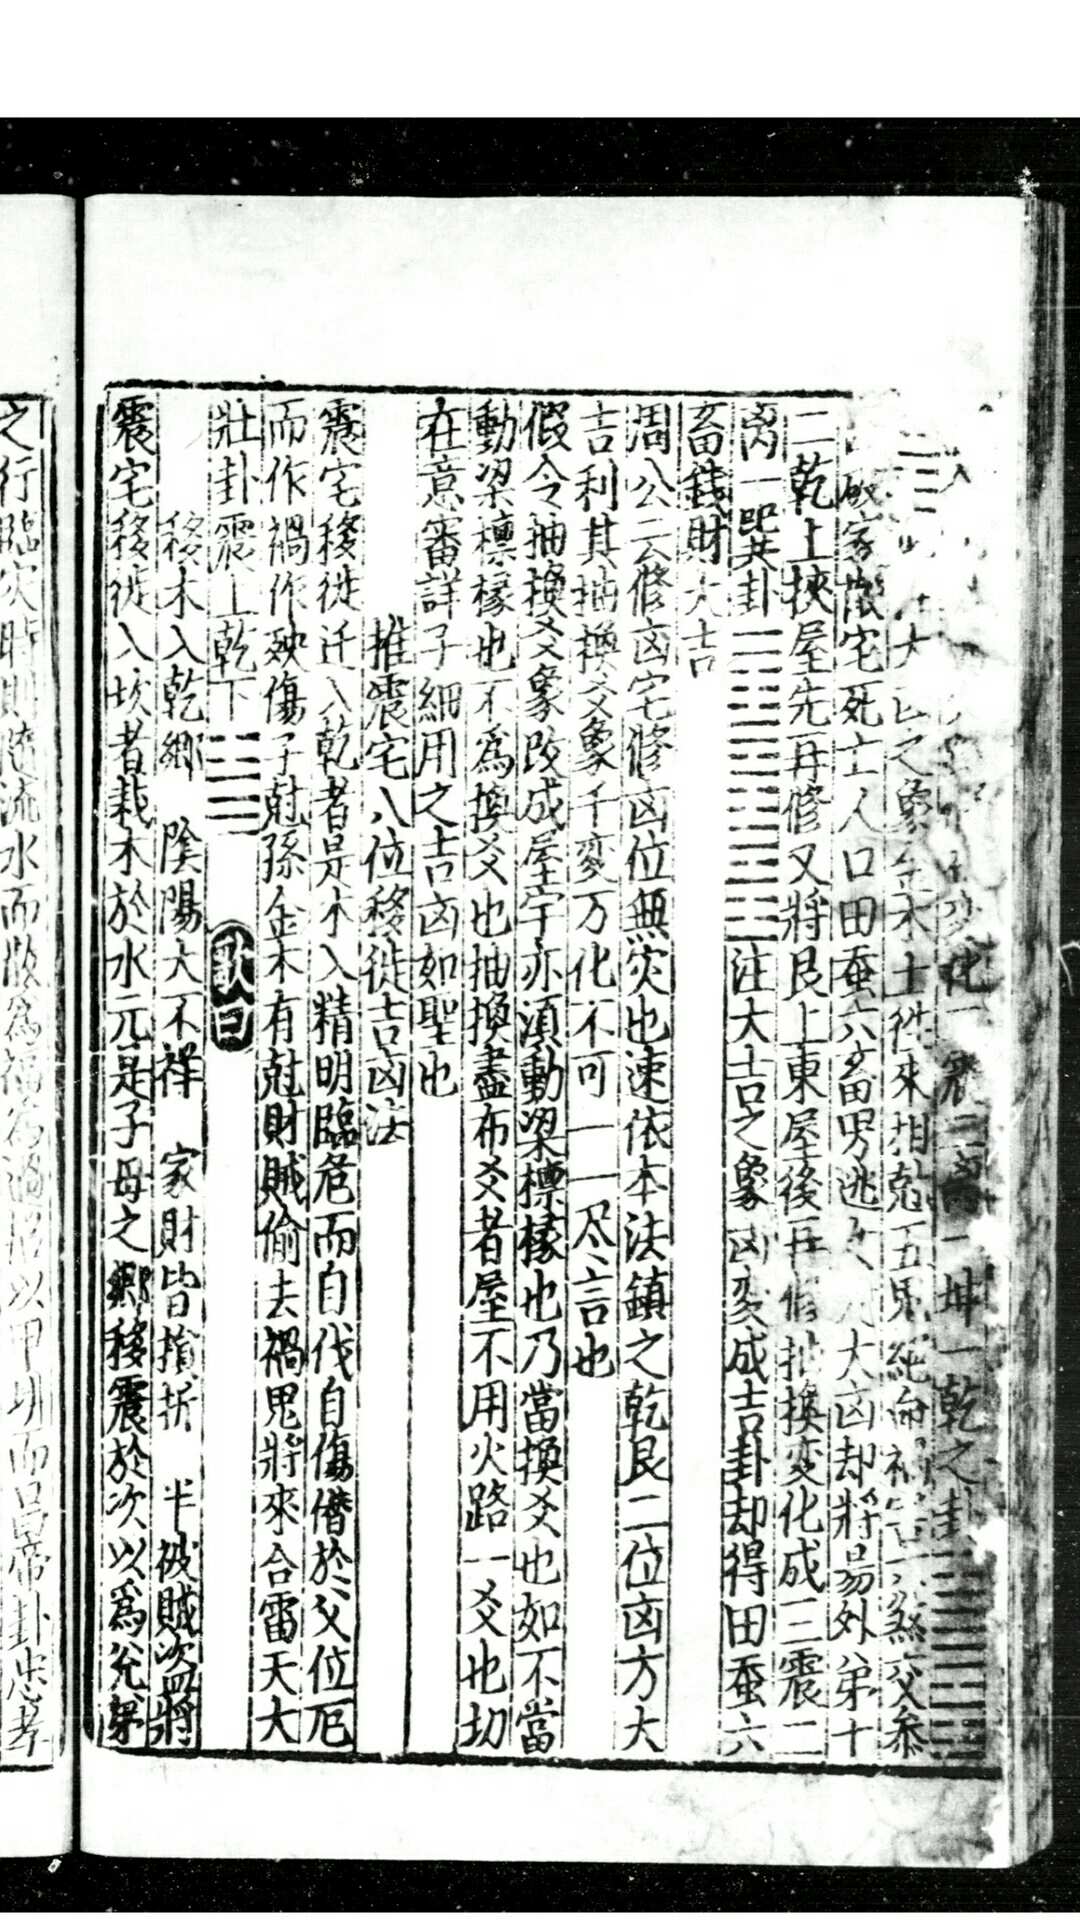 変化一震三离一坤一乾之卦
大凶之象金木水土徃來相尅五鬼絶命禍害六煞父叅
家敗宅死亡人口田蚕六畜男逃女大凶却將易外弟十
二乾上挾屋先再修又將艮上東屋後再修抽換変化成三震二
离一巽卦注大吉之象凶変成吉卦却得田蚕六
畜錢財大吉
周公云修凶宅修凶位無灾也速依本法鎮之乾艮二位凶方大
吉利其抽換爻象千変万化不可一一尽言也
假令抽換爻象改成屋宇亦湏動梁檩椽也乃當換爻也如不當
動梁檩椽也不為換爻也抽換盡布爻者屋不用火路一爻也切
在意審詳子細用之吉凶如聖也
推震宅八位移徙吉凶法
震宅移徙迁入乾者是木入精明臨危而自伐自傷僣於父位厄
而作禍作殃傷子尅孫金木有尅財賊偷去禍鬼將來合雷天大
壯卦震上乾下歌曰
移木入乾鄉 陰陽大不祥 家財皆損折 半被賊盗將
震宅移徙入坎者栽木於水元是子母之鄉移震於坎以為允第
之行臨坎時則隨流水而 為福為禍 以甲 而 常卦忠孝